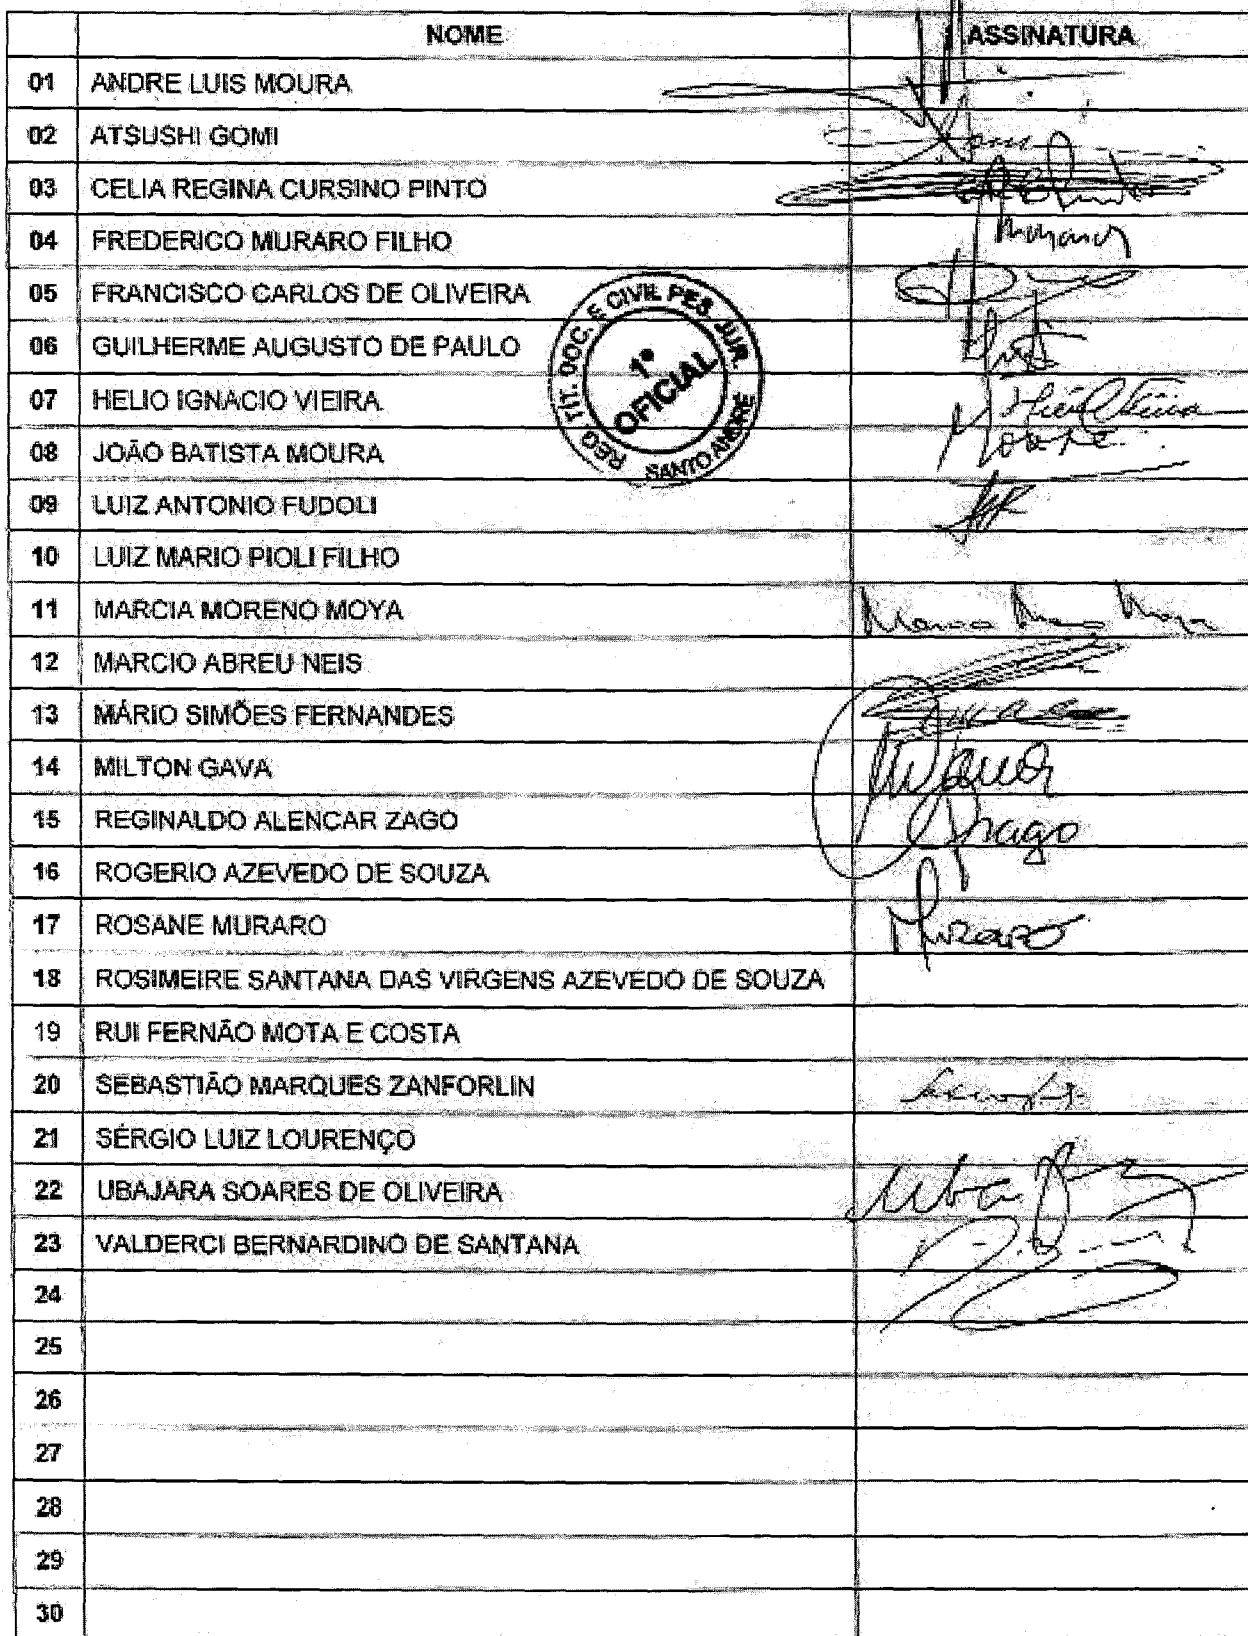 NOME ASSINATURA
01 ANDRE LUIS MOURA
02 ATSUSHI GOMI
03 CELIA REGINA CURSINO PINTO
04 FREDERICO MURARO FILHO
05 FRANCISCO CARLOS DE OLIVEIRA
06 GUILHERME AUGUSTO DE PAULO
07 HELIO IGNACIO VIEIRA
08 JOÃO BATISTA MOURA
09 LUIZ ANTONIO FUDOLI
10 LUIZ MARIO PIOLI FILHO
11 MARCIA MORENO MOYA
12 MARCIO ABREU NEIS
13 MÁRIO SIMÕES FERNANDES
14 MILTON GAVA
15 REGINALDO ALENCAR ZAGO
16 ROGERIO AZEVEDO DE SOUZA
17 ROSANE MURARO Muraro
18 ROSIMEIRE SANTANA DAS VIRGENS AZEVEDO DE SOUZA
19 RUI FERNÃO MOTA E COSTA
20 SEBASTIÃO MARQUES ZANFORLIN
21 SÉRGIO LUIZ LOURENÇO
22 UBAJARA SOARES DE OLIVEIRA
23 VALDERCI BERNARDINO DE SANTANA
24
25
26
27
28
29
30
REG. TIT. DOC. E CIVIL PES. JUR.
1º
OFICIAL
SANTO ANDRÉ